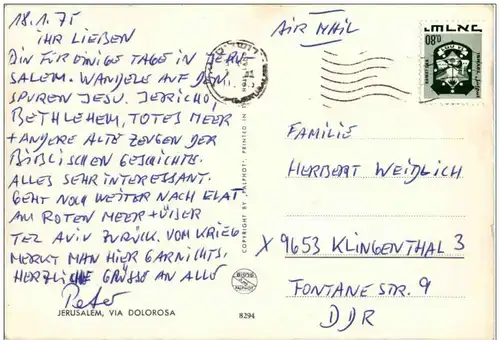 18.1.75
IHR LIEBEN
BIN FÜR EINIGE TAGE IN JERU
SALEM. WANDELE AUF DEN
SPUREN JESU. JERICHO,
BETHLEHEM, TOTES MEER
+ ANDERE ALTE ZEUGEN DER
BIBLISCHEN GESCHICHTE.
ALLES SEHR INTERESSANT.
GEHT NOCH WEITER NACH ELAT
AM ROTEN MEER + ÜBER
TEL AVIV ZURÜCK. VOM KRIEG
MERKT MAN HIER GARNICHTS.
HERZLICHE GRÜSSE AN ALLE
Peter
JERUSALEM, VIA DOLOROSA
8294
COPYRIGHT BY "PALPHOT", PRINTED IN
AIR MAIL
0.80
FAMILIE
HERBERT WEIDLICH
X 9653 KLINGENTHAL 3
FONTANESTR. 9
DDR